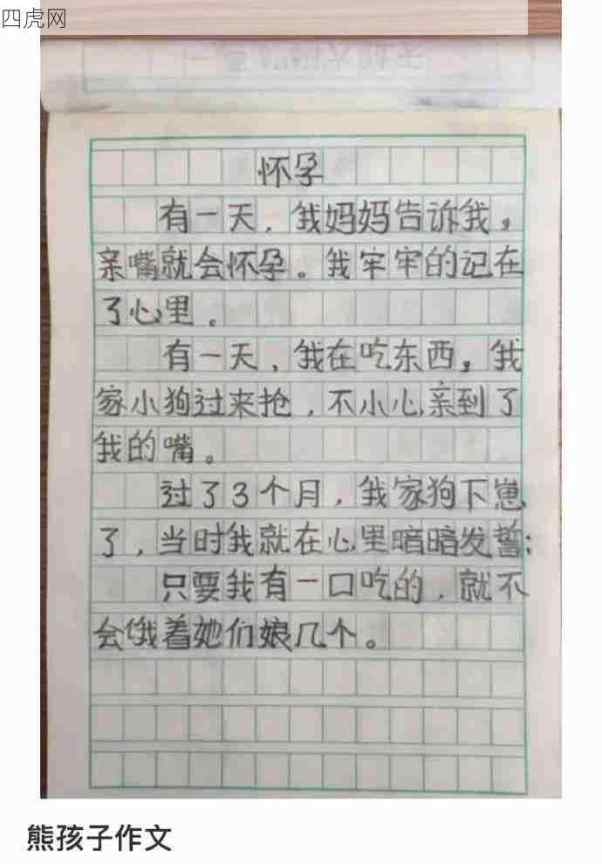 四虎网
怀孕
有一天，我妈妈告诉我，
亲嘴就会怀孕。我牢牢的记在
了心里。
有一天，我在吃东西，我
家小狗过来抢，不小心亲到了
我的嘴。
过了3个月，我家狗下崽
了，当时我就在心里暗暗发誓：
只要我有一口吃的，就不
会饿着她们娘几个。
熊孩子作文